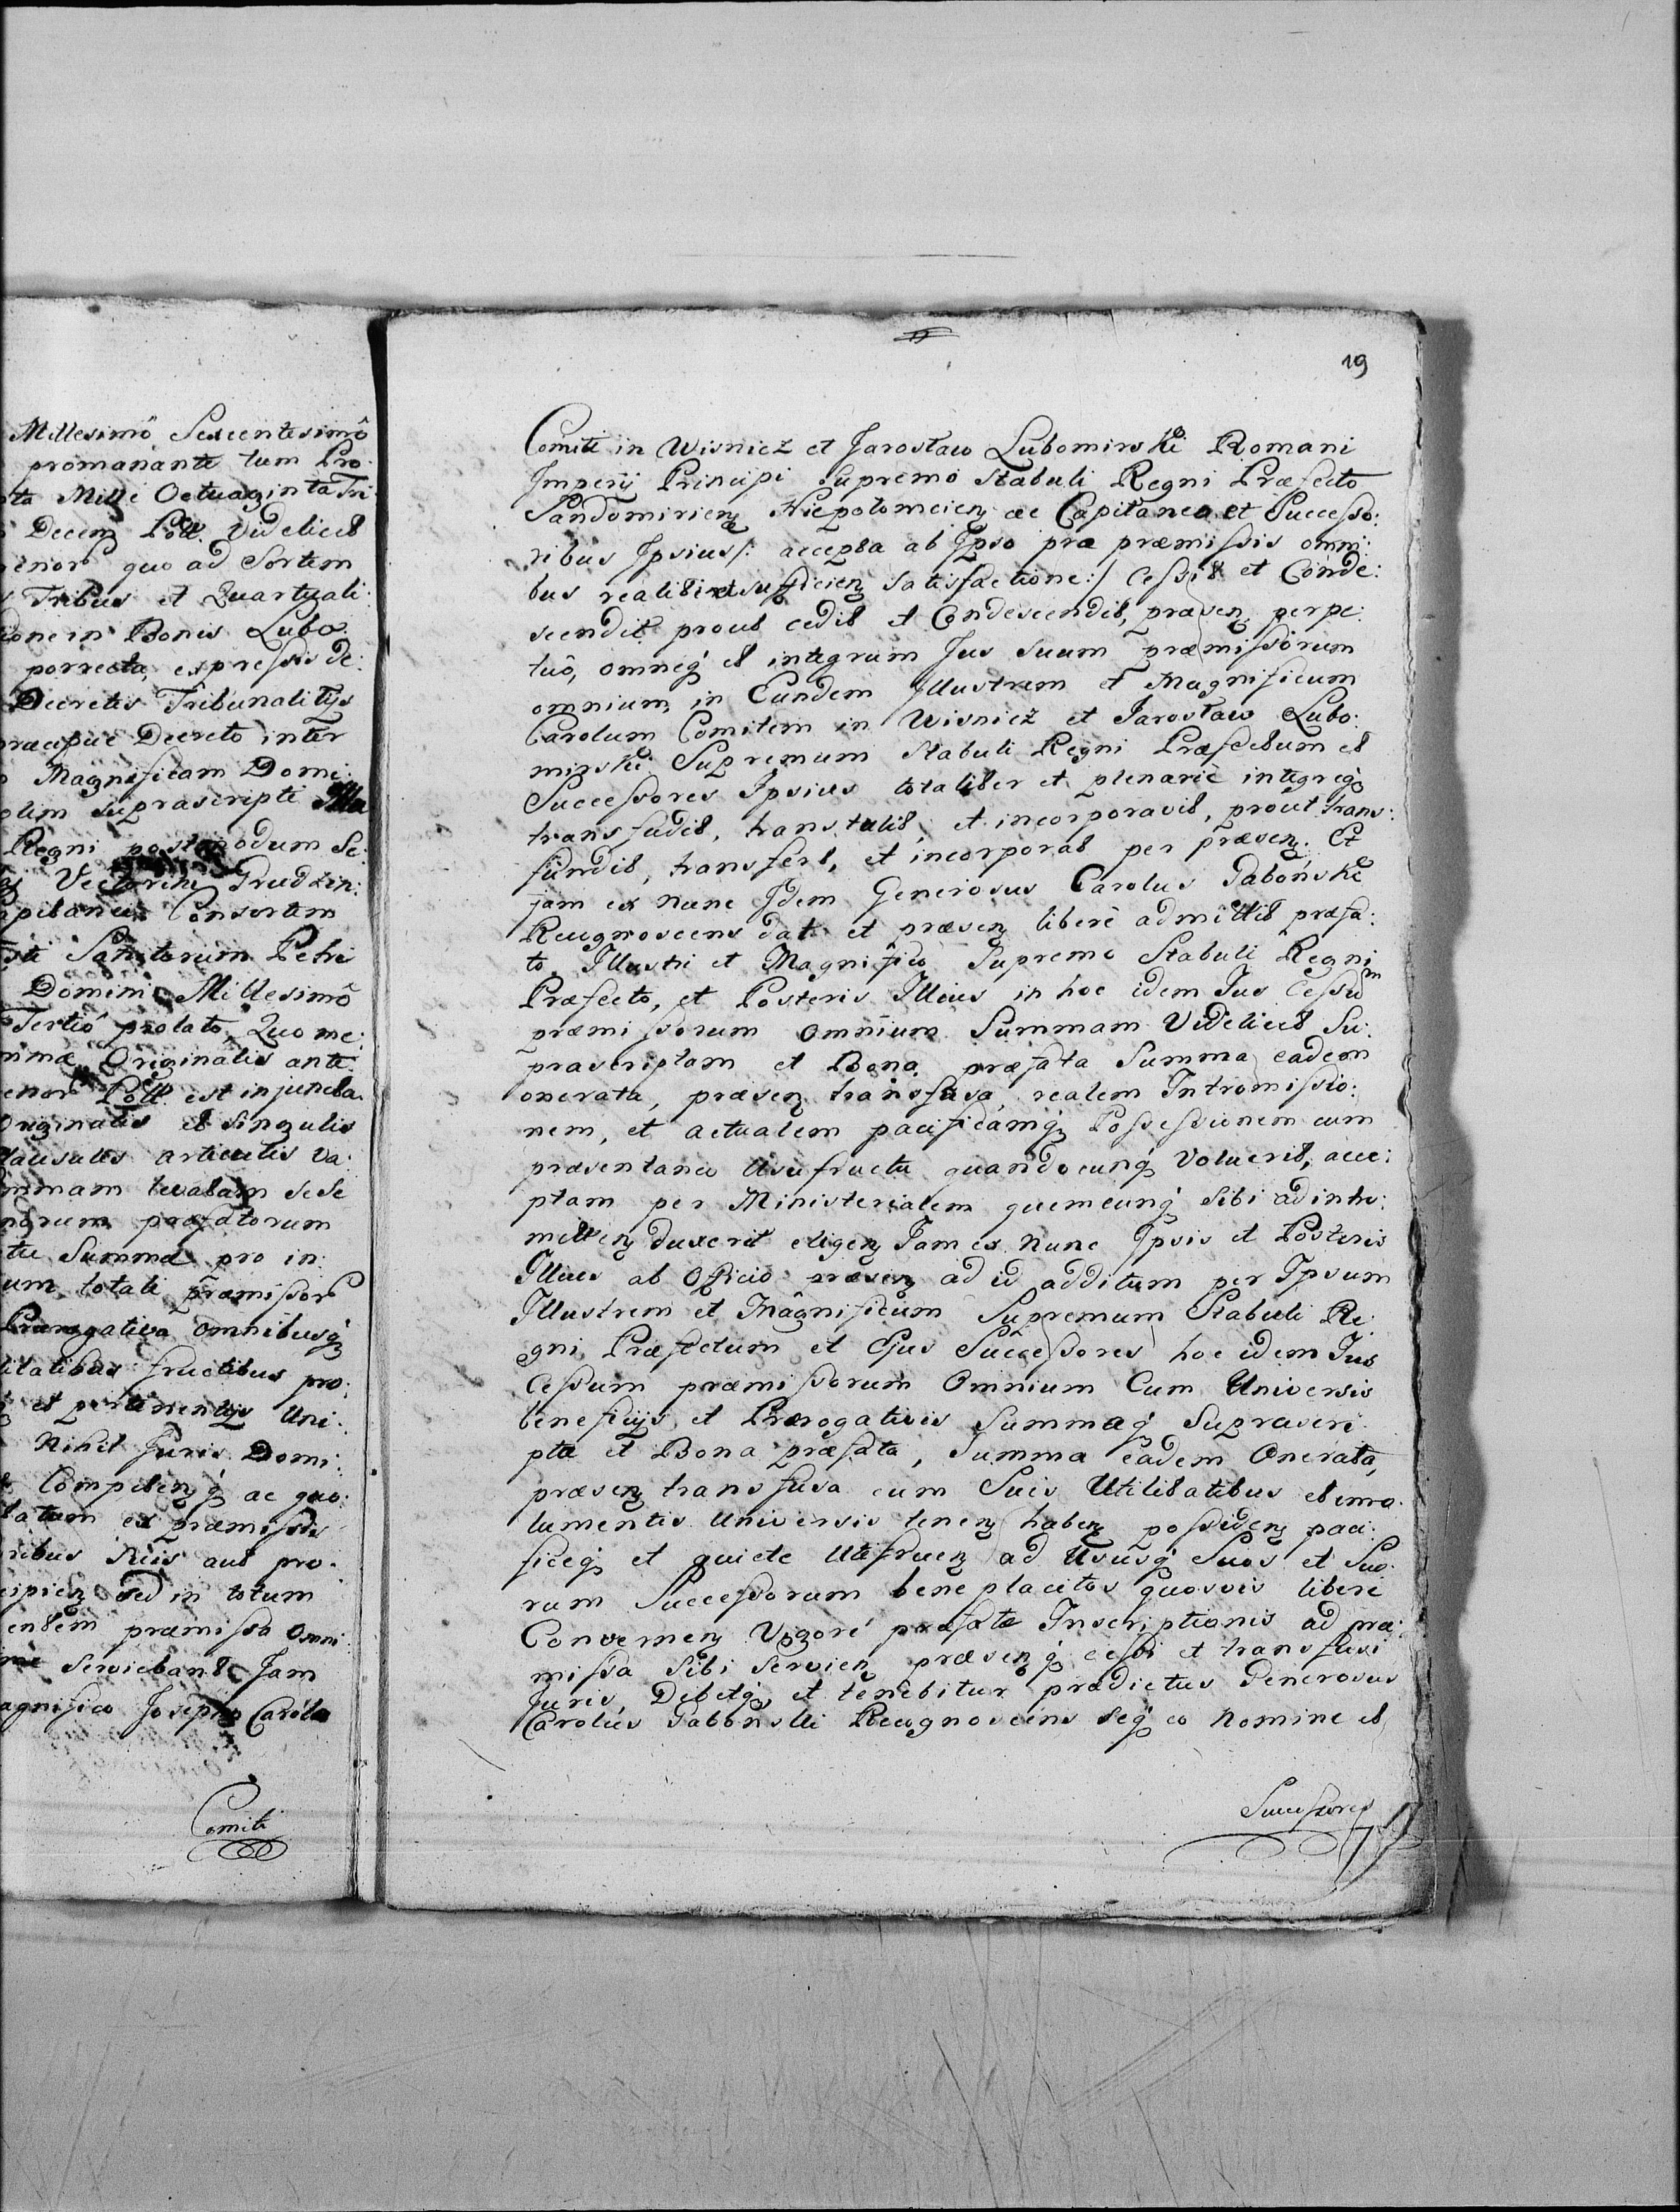 Millesimô Sexcentesimô
promanante tum Pro
Mille Octuaginta Tri
Decem Poll. Videlicet
quo ad Sortem
Tribus et Quartuali:
in Bonis Lubo:
porrecta, expressis de:
Decretis Tribunalitijs
Decreto inter
Magnificam Domi:
olim suprascripti
Regni postmodum Se:
Grudzin:
Consortem
Sanctorum Petri
Domini Millesimô
Tertiô prolato, Quo me:
Originalis ante
Poll est injuncta.
Originalis et Singulis
articulis va:
levatam sese
præfatorum
Summa pro in:
totali præmissor
Prærogativa omnibusq
fructibus pro:
et pertinentijs Uni:
Nihil Juris Domi:
Competenq ac quo:
ex præmissis
suis aut pro:
sed in totum
præmissa omni
serviebant Jam
Josepho Carolo
Comiti
19
Comiti in Wisnicz et Jarosław Lubomirski Romani
Imperij Principi Supremo Stabuli Regni Præfecto
Sandomirienз Niepołomcienз ac Capitaneo et Successo:
ribus Ipsius /: accepta ab Ipso præ præmissis omni:
bus reali et sufficienз satisfactione :/ Cessit et Conde:
scendit prout cedit et Condescendit, præsenз perpe:
tuô, omneq et integrum Jus suum præmissorum
omnium, in Eundem Illustrem et Magnificum
Carolum Comitem in Wisnicz et Jarosław Lubo:
mirski Supremum Stabuli Regni Præfectum et
Successores Ipsius totaliter et plenariè integreq
transfudit, transtulit, et incorporavit, prout trans:
fundit, transfert, et incorporat per præsenз. Et
jam ex nunc Idem Generosus Carolus Gaboński
Recognoscens dat et præsenз liberè admittit præfa:
to Illustri et Magnifico Supremo Stabuli Regni
Præfecto, et Posteris Illius in hoc idem Jus Cessum
præmissorum omnium Summam Videlicet Su:
prascriptam et Bona præfata Summa eadem
onerata, præsenз transfusa, realem Intromissio:
nem, et actualem pacificamq Possessionem cum
præsentaneo Usufructu quandocunq Voluerit, acce:
ptam per Ministerialem quemcunq Sibi ad intro:
mittenз duxerit eligenз Jam ex nunc Ipsis et Posteris
Illius ab Officio præsenз ad id additum per Ipsum
Illustrem et Magnificum Supremum Stabuli Re:
gni Præfectum et Ejus Successores hoc idem Jus
Cessum præmissorum Omnium Cum Universis
beneficijs et Prærogativis Summaq Suprascri
pta et Bona præfata, Summa eadem Onerata,
præsenз transfusa cum Suis Utilitatibus et emo:
lumentis Universis tenenз habenз possidenз paci:
ficeq et quiete Utifruenз ad Ususq Suos et Suo:
rum Successorum beneplacitos quosvis liberè
Convertenз Vigore præfatæ Inscriptionis ad præ:
missa Sibi Servienз præsenзq cessi et transfusi
Juris, Debetq et tenebitur prædictus Generosus
Carolus Gaboński Recognoscens seq eo Nomine et
Successores